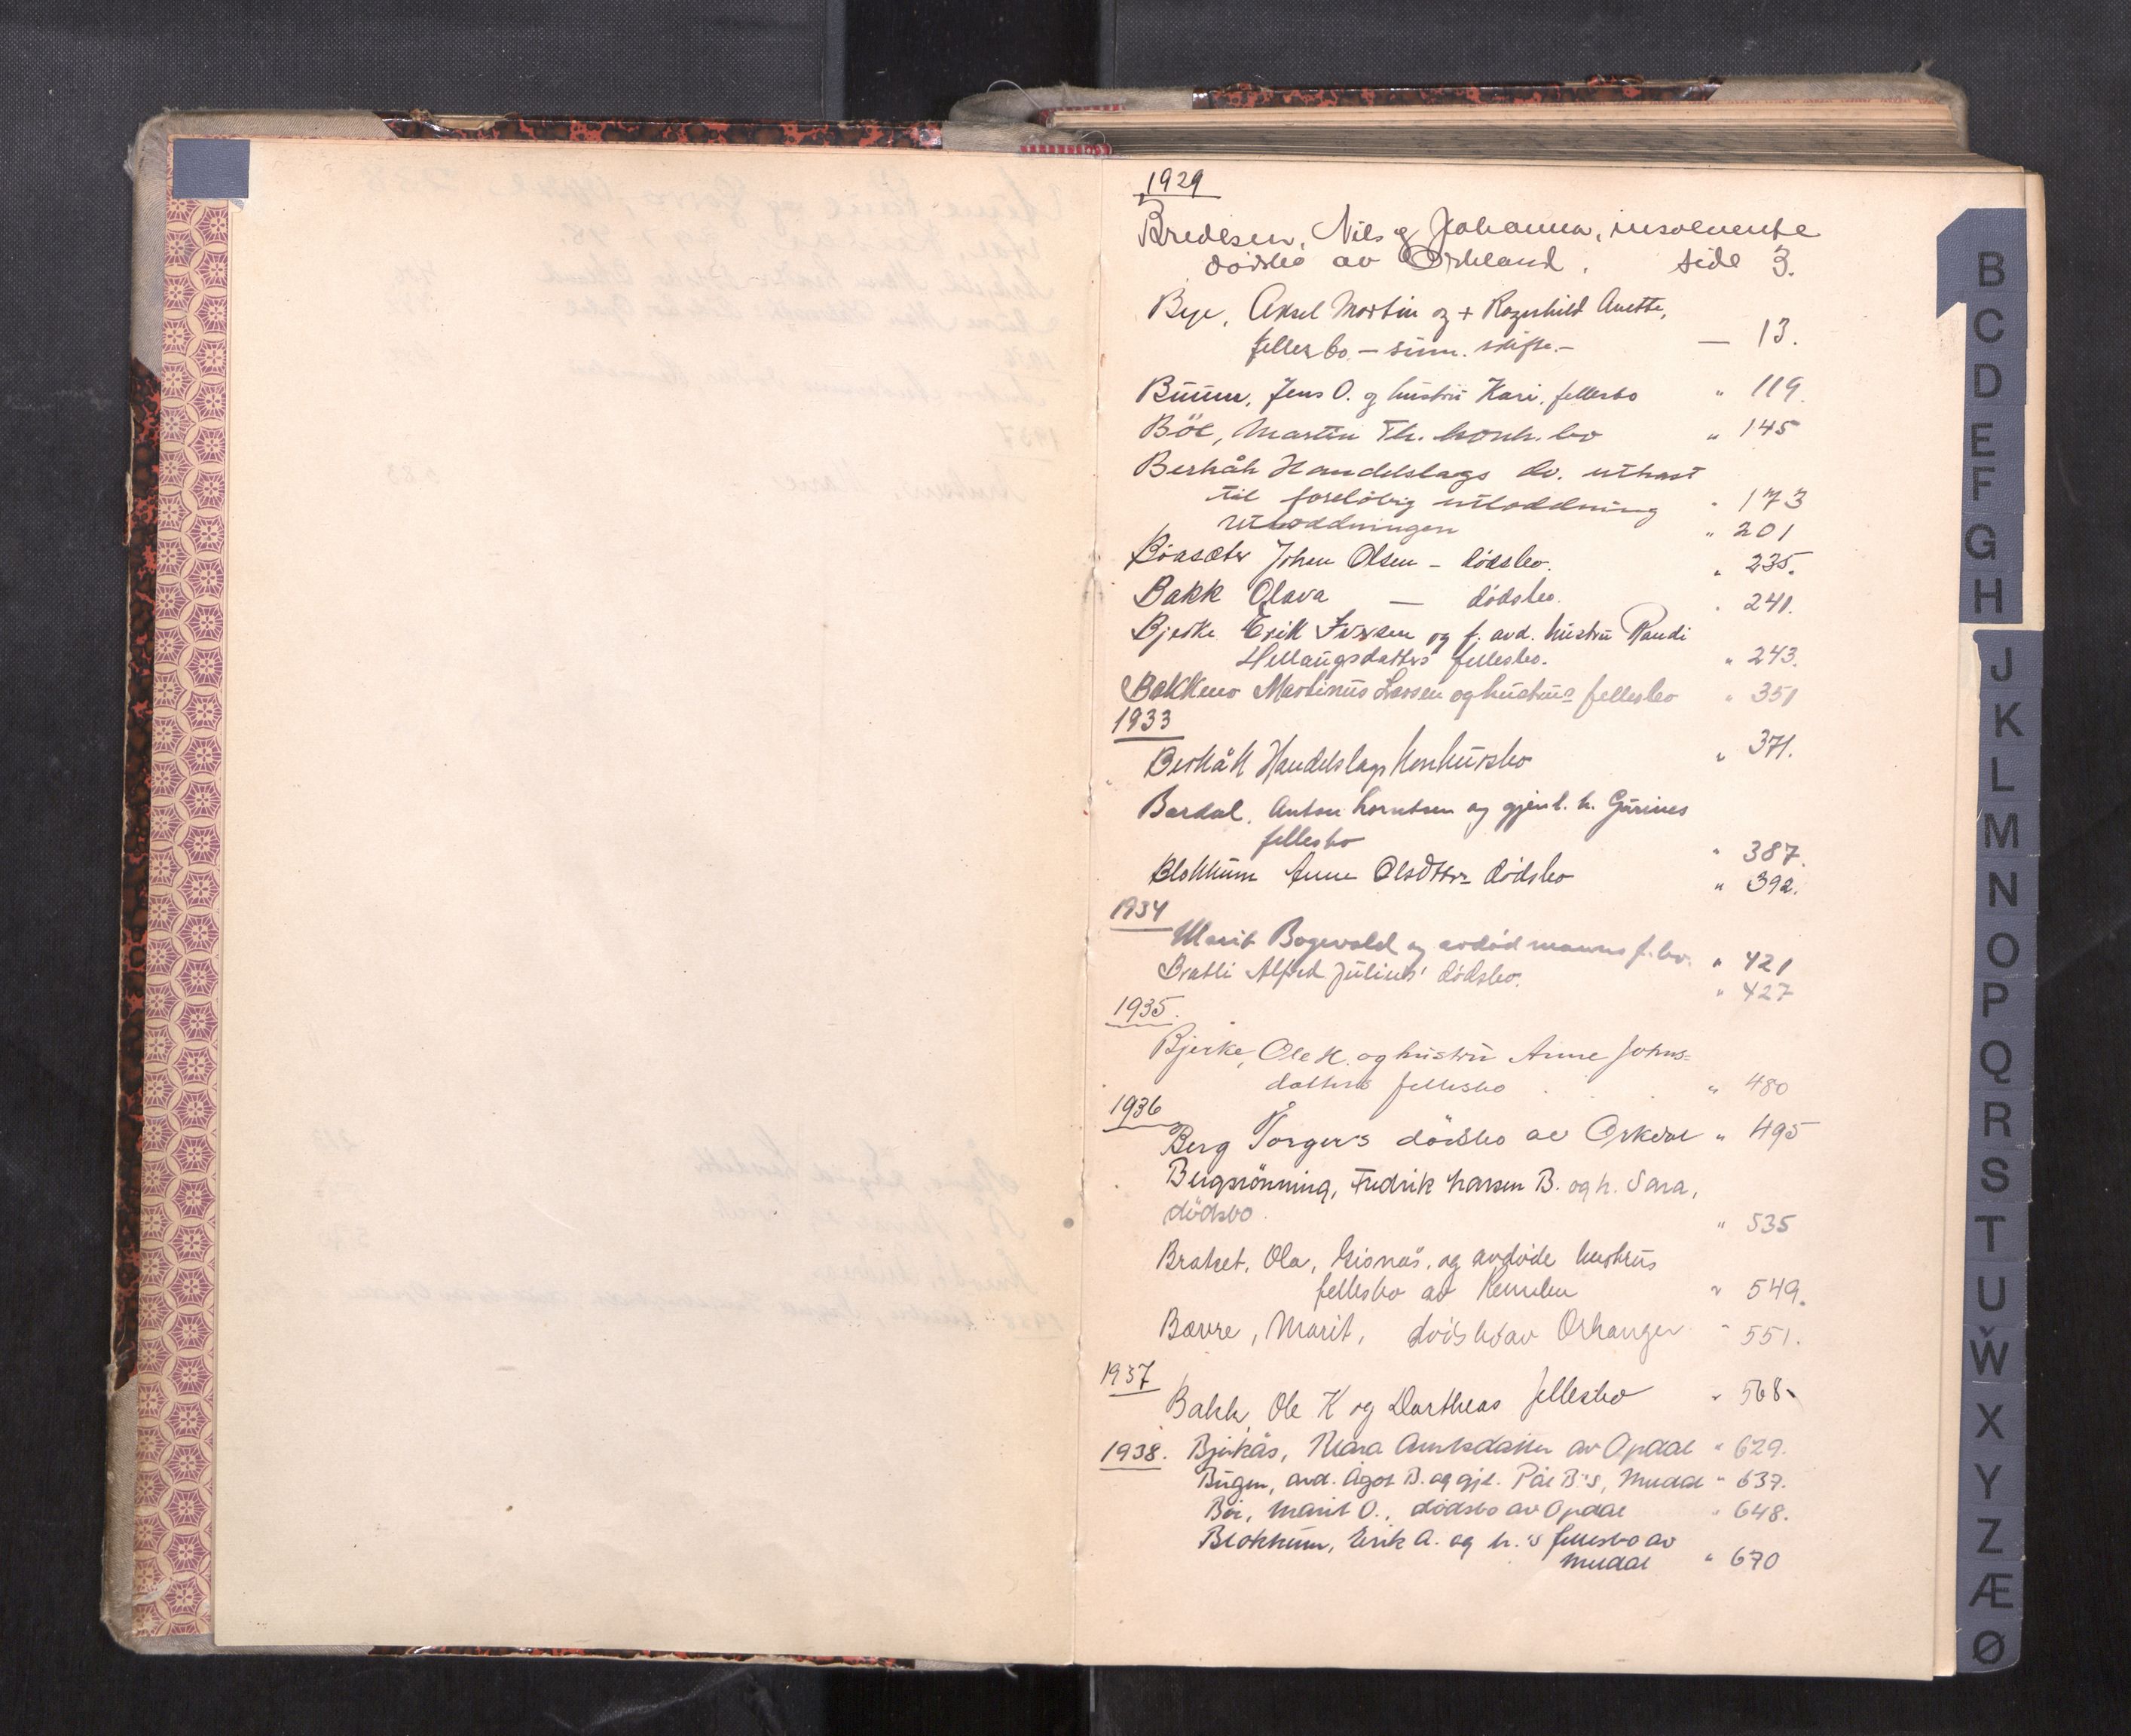 1929
Bredesen, Nils og Johanna, insolvente
dödsbo av Orkland. side 3.
Bye, Aksel Martin og + Ragnhild Anette,
fellesbo - sum. skifte. - — 13.
Buum, Jens O. og hustru Kari, fellesbo " 119.
Böe, Martin Th. konk. bo " 145
Berkåk Handelslags bo. utkast
til foreløbig utloddning " 173
utloddningen " 201
Böasæter Johan Olsen - dödsbo. " 235.
Bakk Olava — dödsbo. " 241.
Bjerke Erik Iversen og f. avd. hustru Randi
fellesbo. " 243.
Bakkmo Martinus Larsen og hustrus fellesbo " 351
1933
Berkåk Handelslags konkursbo " 371.
Bardal, Anton Lorntsen og gjenl. h. Gurines
fellesbo " 387.
Blokkum Anne Olsdtrs dödsbo " 392.
1934
Marit Bogevald og avdöd manns f. bo. " 421
Bratli Alfred Julius' dödsbo. " 427
1935.
Bjerke, Ole H. og hustru Anne Johns=
datters fellesbo " 480
1936
Berg Torger's dödsbo av Orkdal " 495
Bergsrönning, Fredrik Larsen B. og h. Sara,
dödsbo. " 535
Bratset, Ola, Gisnås, og avdöde hustrus
fellesbo av Rennebu " 549.
Bævre, Marit, dödsbo av Orkanger " 551.
1937
Bakk, Ole K og Dortheas fellesbo " 568.
1938. Bjerkås, Mara Arntsdatter av Opdal " 629.
Bugen, avd. Ågot B. og gjl. Pål B's, Meldal " 637.
Bøe, Marit O., dödsbo av Opdal " 648.
Blokkum, Erik A. og h.'s fellesbo av
Meldal " 670
B
C
D
E
F
G
H
J
K
L
M
N
O
P
Q
R
S
T
U
W
X
Y
Z
Æ
Ø